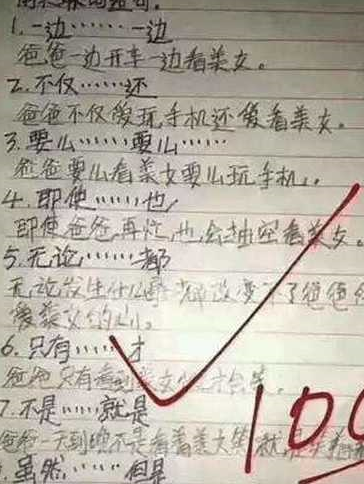 用关联词造句。
1.一边……一边
爸爸一边开车一边看美女。
2.不仅……还
爸爸不仅爱玩手机还爱看美女。
3.要么……要么……
爸爸要么看美女要么玩手机。
4.即使……也
即使爸爸再忙,也会抽空看美女。
5.无论……都
无论发生什么事都改变不了爸爸
爱美女的心。
6.只有……才
爸爸只有看到美女才会笑。
7.不是……就是
爸爸一天到晚不是看着美女笑就是
.虽然……但是
100